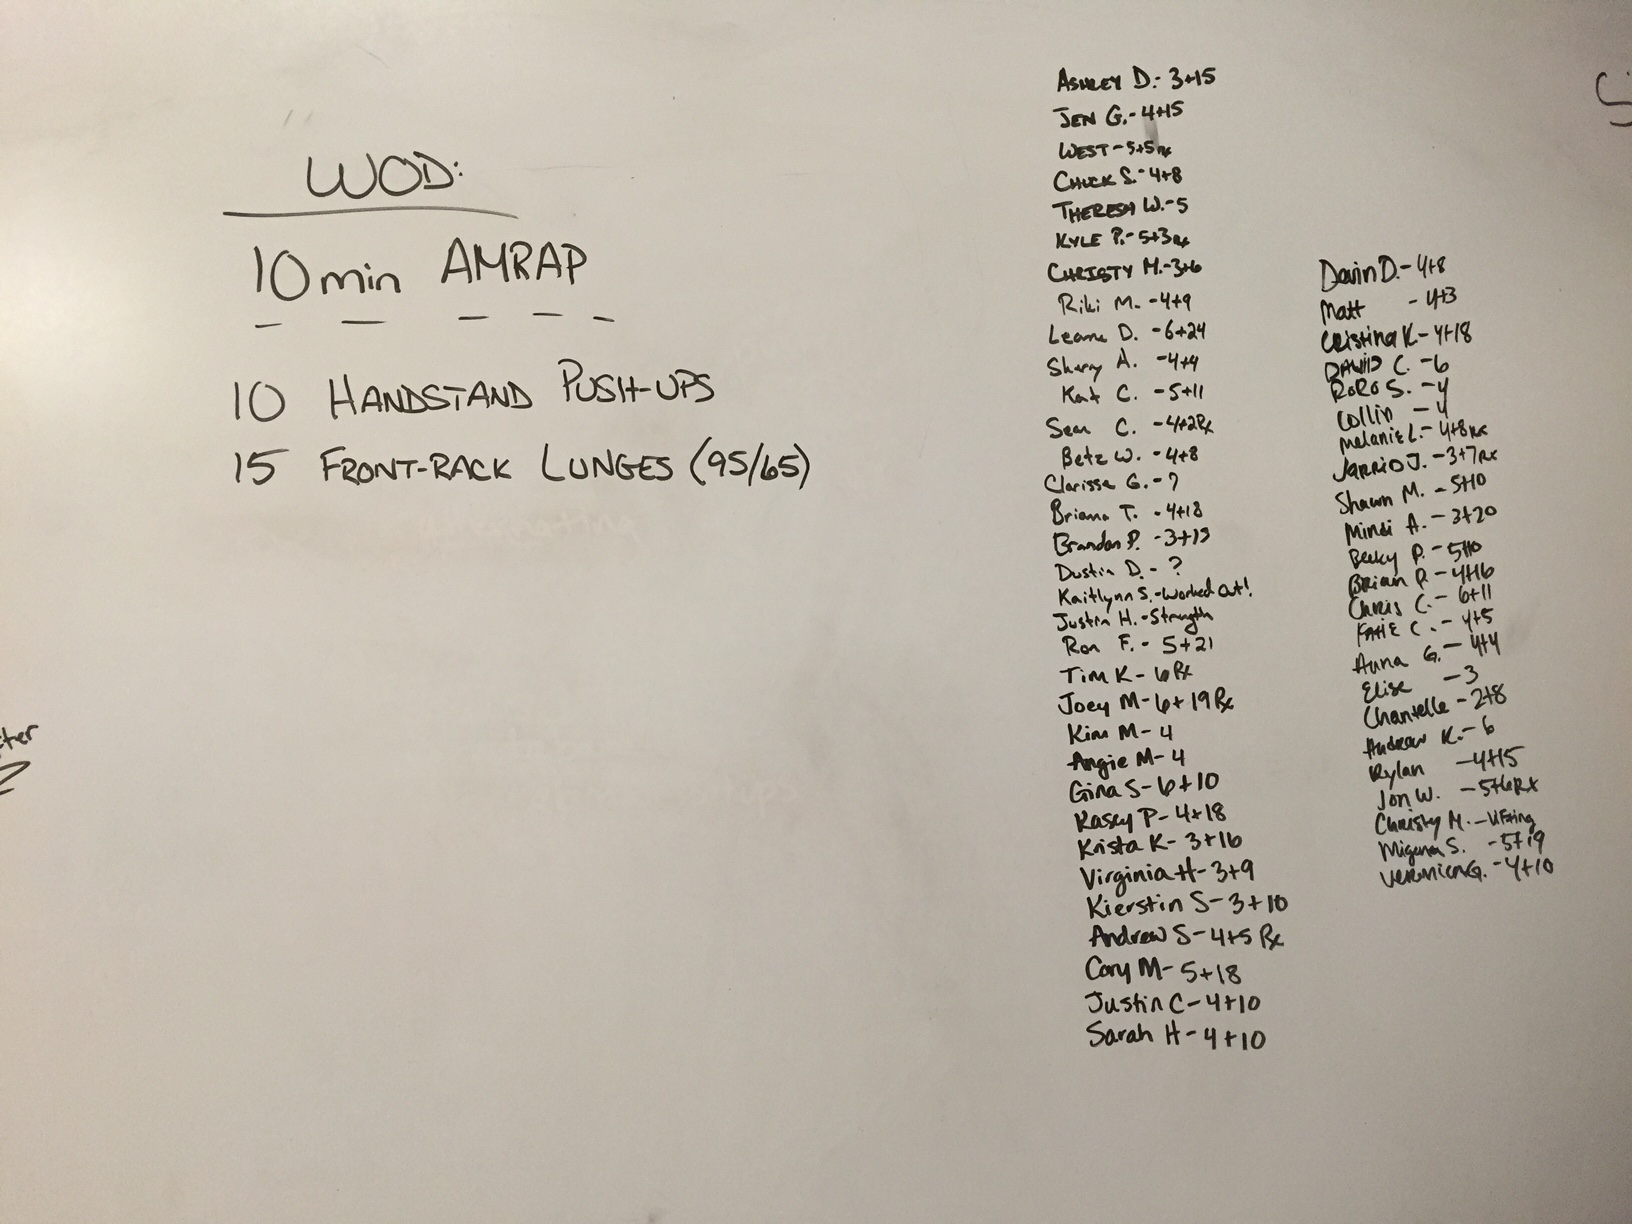 WOD:
10 min AMRAP
10 HANDSTAND PUSH-UPS
15 FRONT-RACK LUNGES (95/65)
ASHLEY D.- 3+15
JEN G.- 4+15
WEST - 5+5 Rx
CHUCK S.- 4+8
THERESA W.- 5
KYLE P.- 5+3 Rx
CHRISTY M.- 3+6
Riki M. - 4+9
Leanne D. - 6+24
Sherry A. - 4+4
Kat C. - 5+11
Sean C. - 4+2 Rx
Betz W. - 4+8
Clarissa G. - ?
Briana T. - 4+18
Brandon P. - 3+13
Dustin D. - ?
Kaitlynn S. - Worked Out!
Justin H. - Strength
Ron F. - 5+21
Tim K - 6 Rx
Joey M - 6+19 Rx
Kim M - 4
Angie M - 4
Gina S - 6+10
Kasey P - 4+18
Krista K - 3+16
Virginia H - 3+9
Kierstin S - 3+10
Andrew S - 4+5 Rx
Cory M - 5+18
Justin C - 4+10
Sarah H - 4+10
Devin D. - 4+8
Matt - 4+3
Cristina K - 4+18
DAVID C. - 6
RoRo S. - 4
Collin - 4
Melanie L. - 4+8 Rx
Jarrid J. - 3+7 Rx
Shawn M. - 5+10
Mindi A. - 3+20
Becky P. - 5+10
Brian P. - 4+16
Chris C. - 6+11
KATIE C. - 4+5
Anna G. - 4+4
Elise - 3
Chantelle - 2+8
Andrew K. - 6
Rylan - 4+15
Jon W. - 5+6 Rx
Christy M. -
S. - 5+19
G. - 4+10